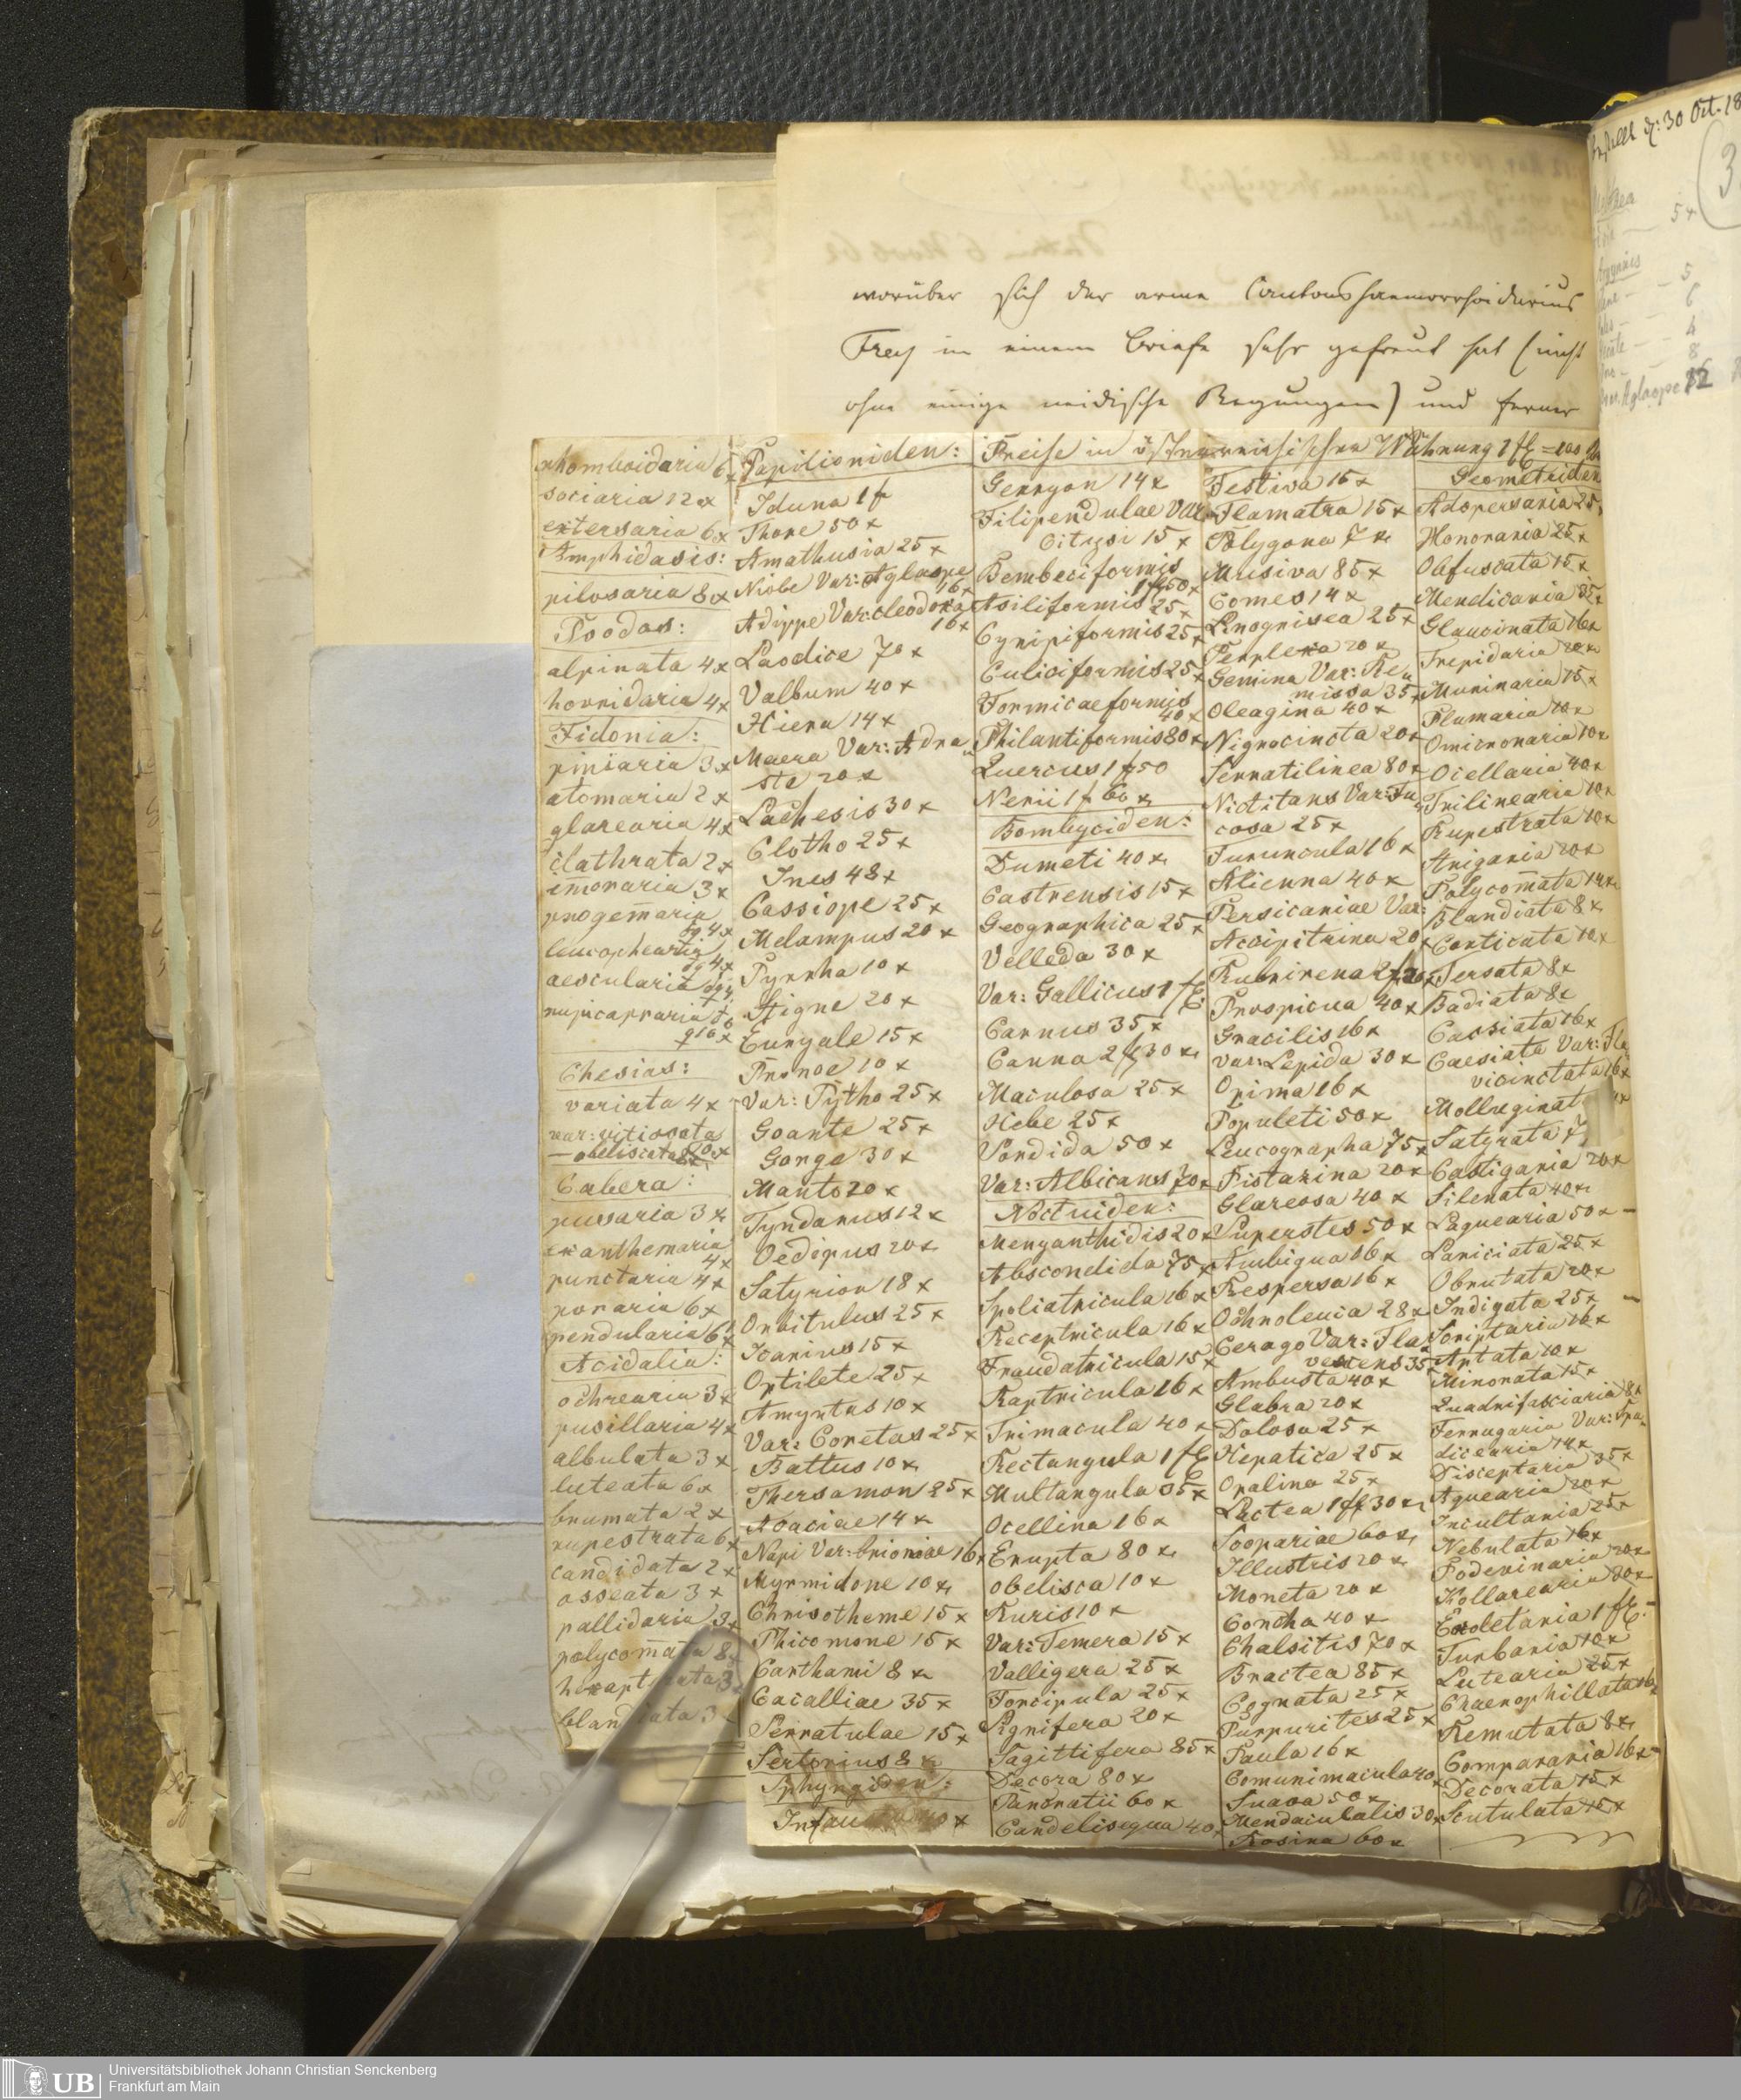 worüber sich der arme Cantonshaemorrhoidarius
Frey in einem Briefe sehr gefreut hat (nicht
ohne einige neidische Regungen) und ferner
rhomboidaria 6x
sociaria 12x
extersaria 6x
Amphidasis:
pilosaria 8x
alpinata 4x
horridaria 4x
Fidonia:
piniaria 3x
atomaria 2x
glarearia 4x
clathrata 2x
progem̄aria
aescularia
Chesias:
variata 4x
Cabera:
pusaria 3x
exanthemaria
4x
punctaria 4x
poraria 6x
pendularia 6x
Acidalia:
ochrearia 3x
pusillaria 4x
albulata 3x
luteata 6x
brumata 2x
rupestrata 6x
candidata 2x
osseata 3x
pallidaria 3x
polycom̄ata 8x
Papilioniden:
Iduna 1f
Thore 50x
Amathusia 25x
Niobe Var: Aglaope
16x
Adippe Var: cleodoxa
16x
Laodice 70x
Valbum 40x
Hiera 14x
Maera Var: Adra„
sta 20x
Lachesis 30x
Clotho 25x
Ines 48x
Cassiope 25x
Melampus 20x
Pyrrha 10x
Stigne 20x
Euryale 15x
Pronoe 10x
Var: Pytho 25x
Goante 25x
Gorge 30x
Manto 20x
Tyndarus 12x
Oedipus 20x
Satyrion 18x
Orbitulus 25x
Icarius 15x
Optilete 25x
Amyntas 10x
Var: Coretas 25x
Battus 10x
Thersamon 25x
Acaciae 14x
Napi Var: brioniae 16x
Myrmidone 10x
Chrisotheme 15x
Phicomone 15x
Carthami 8x
Cacalliae 35x
Serratulae 15x
Sertorius 8x
Sphyngiden:
Preise in österreichischer Währung 1 fl = 100
Geryon 14x
Filipendulae Var:
Citysi 15x
Bembeciformis
1 fl 50x
Asiliformis 25x
Cynipiformis 25x
Culiciformis 25x
Formicaeformis
40x
Philantiformis 80x
Quercus 1 fl 50
Nerii 1 f 60x
Bombyciden:
Dumeti 40x
Castrensis 15x
Geographica 25x
Velleda 30x
Var: Gallicus 1 fl
Carnus 35x
Canna 2 fl 30x
Maculosa 25x
Hebe 25x
Sordida 50x
Var: Albicans 70x
Noctuiden:
Menyanthidis 20x
Abscondida 75x
Spoliatricula 16x
Receptricula 16x
Fraudatricula 15x
Raptricula 16x
Trimacula 40x
Rectangula 1 fl
Multangula 35x
Ocellina 16x
Erupta 80x
obelisca 10x
Ruris 10x
Var: Temera 15x
Valligera 25x
Forcipula 25x
Signifera 20x
Sagittifera 85x
Decora 80x
Pancratii 60x
Candelisequa 40x
Festiva 16x
Flamatra 15x
Polygona 7x
Musiva 85x
Comes 14x
Linogrisea 25x
Perplexa 20x
Gemina Var: Re„
missa 35x
Oleagina 40x
Nigrocincta 20x
Serratilinea 80x
Nictitans Var: Fu„
cosa 25x
Furuncula 16x
Aliena 40x
Persicariae Var:
Accipitrina 20x
Prospicua 40x
Gracilis 16x
Var: Lepida 30x
Opima 16x
Populeti 50x
Leucographa 75x
Pistacina 20x
Glareosa 40x
Superstes 50x
Ambigua 16x
Respersa 16x
Ochroleuca 28x
Cerago Var: Fla„
vescens 35x
Ambusta 40x
Glabra 20x
Dolosa 25x
Hepatica 25x
Opalina 25x
Lactea 1 fl 30x
Scopariae 60x
Illustris 20x
Moneta 20x
Concha 40x
Chalsitis 70x
Bractea 85x
Cognata 25x
Purpurites 25x
Paula 16x
Comunimacula 40x
Suava 50x
Mendaculalis 30x
Rosina 60x
Geometriden
Adspersaria 25x
Honoraria 25x
Obfuscata 15x
Mendicaria 35x
Glaucinata 16x
Trepidaria 20x
Murinaria 15x
Plumaria 10x
Omicronaria 10x
Ocellaria 40x
Trilinearia 10x
Rupestrata 10x
Strigaria 20x
Polycom̄ata 14x
Blandiata 8x
Corticata 10x
Tersata 8x
Badiata 8x
Caesiata 16x
Caesiata Var: Fla„
vicinctata 16x
Satyrata 7
Castigaria 20x
Silenata 40x
Laquearia 50x –
Lariciata 25x
Obrutata 20x
Indigata 25x –
Scriptaria 16x
Aptata 10x
Minorata 15x
Quadrifasciaria 8x
Ferrugaria Var: Spa„
dicearia 14x
Disceptaria 35x
Aquearia 20x
Incultaria 25x
Nebulata 16x
Podevinaria 20x
Kollarearia 80x
Exoletaria 1 fl. –
Turbaria 10x
Lutearia 25x
Chaerophillata 16x
Remutata 8x
Compararia 16x –
Decorata 15x
Scutulata 15x
d: 30 Oct. 18
5x
5
6
4
8
Aglaope 12
UB
Universitätsbibliothek Johann Christian Senckenberg
Frankfurt am Main